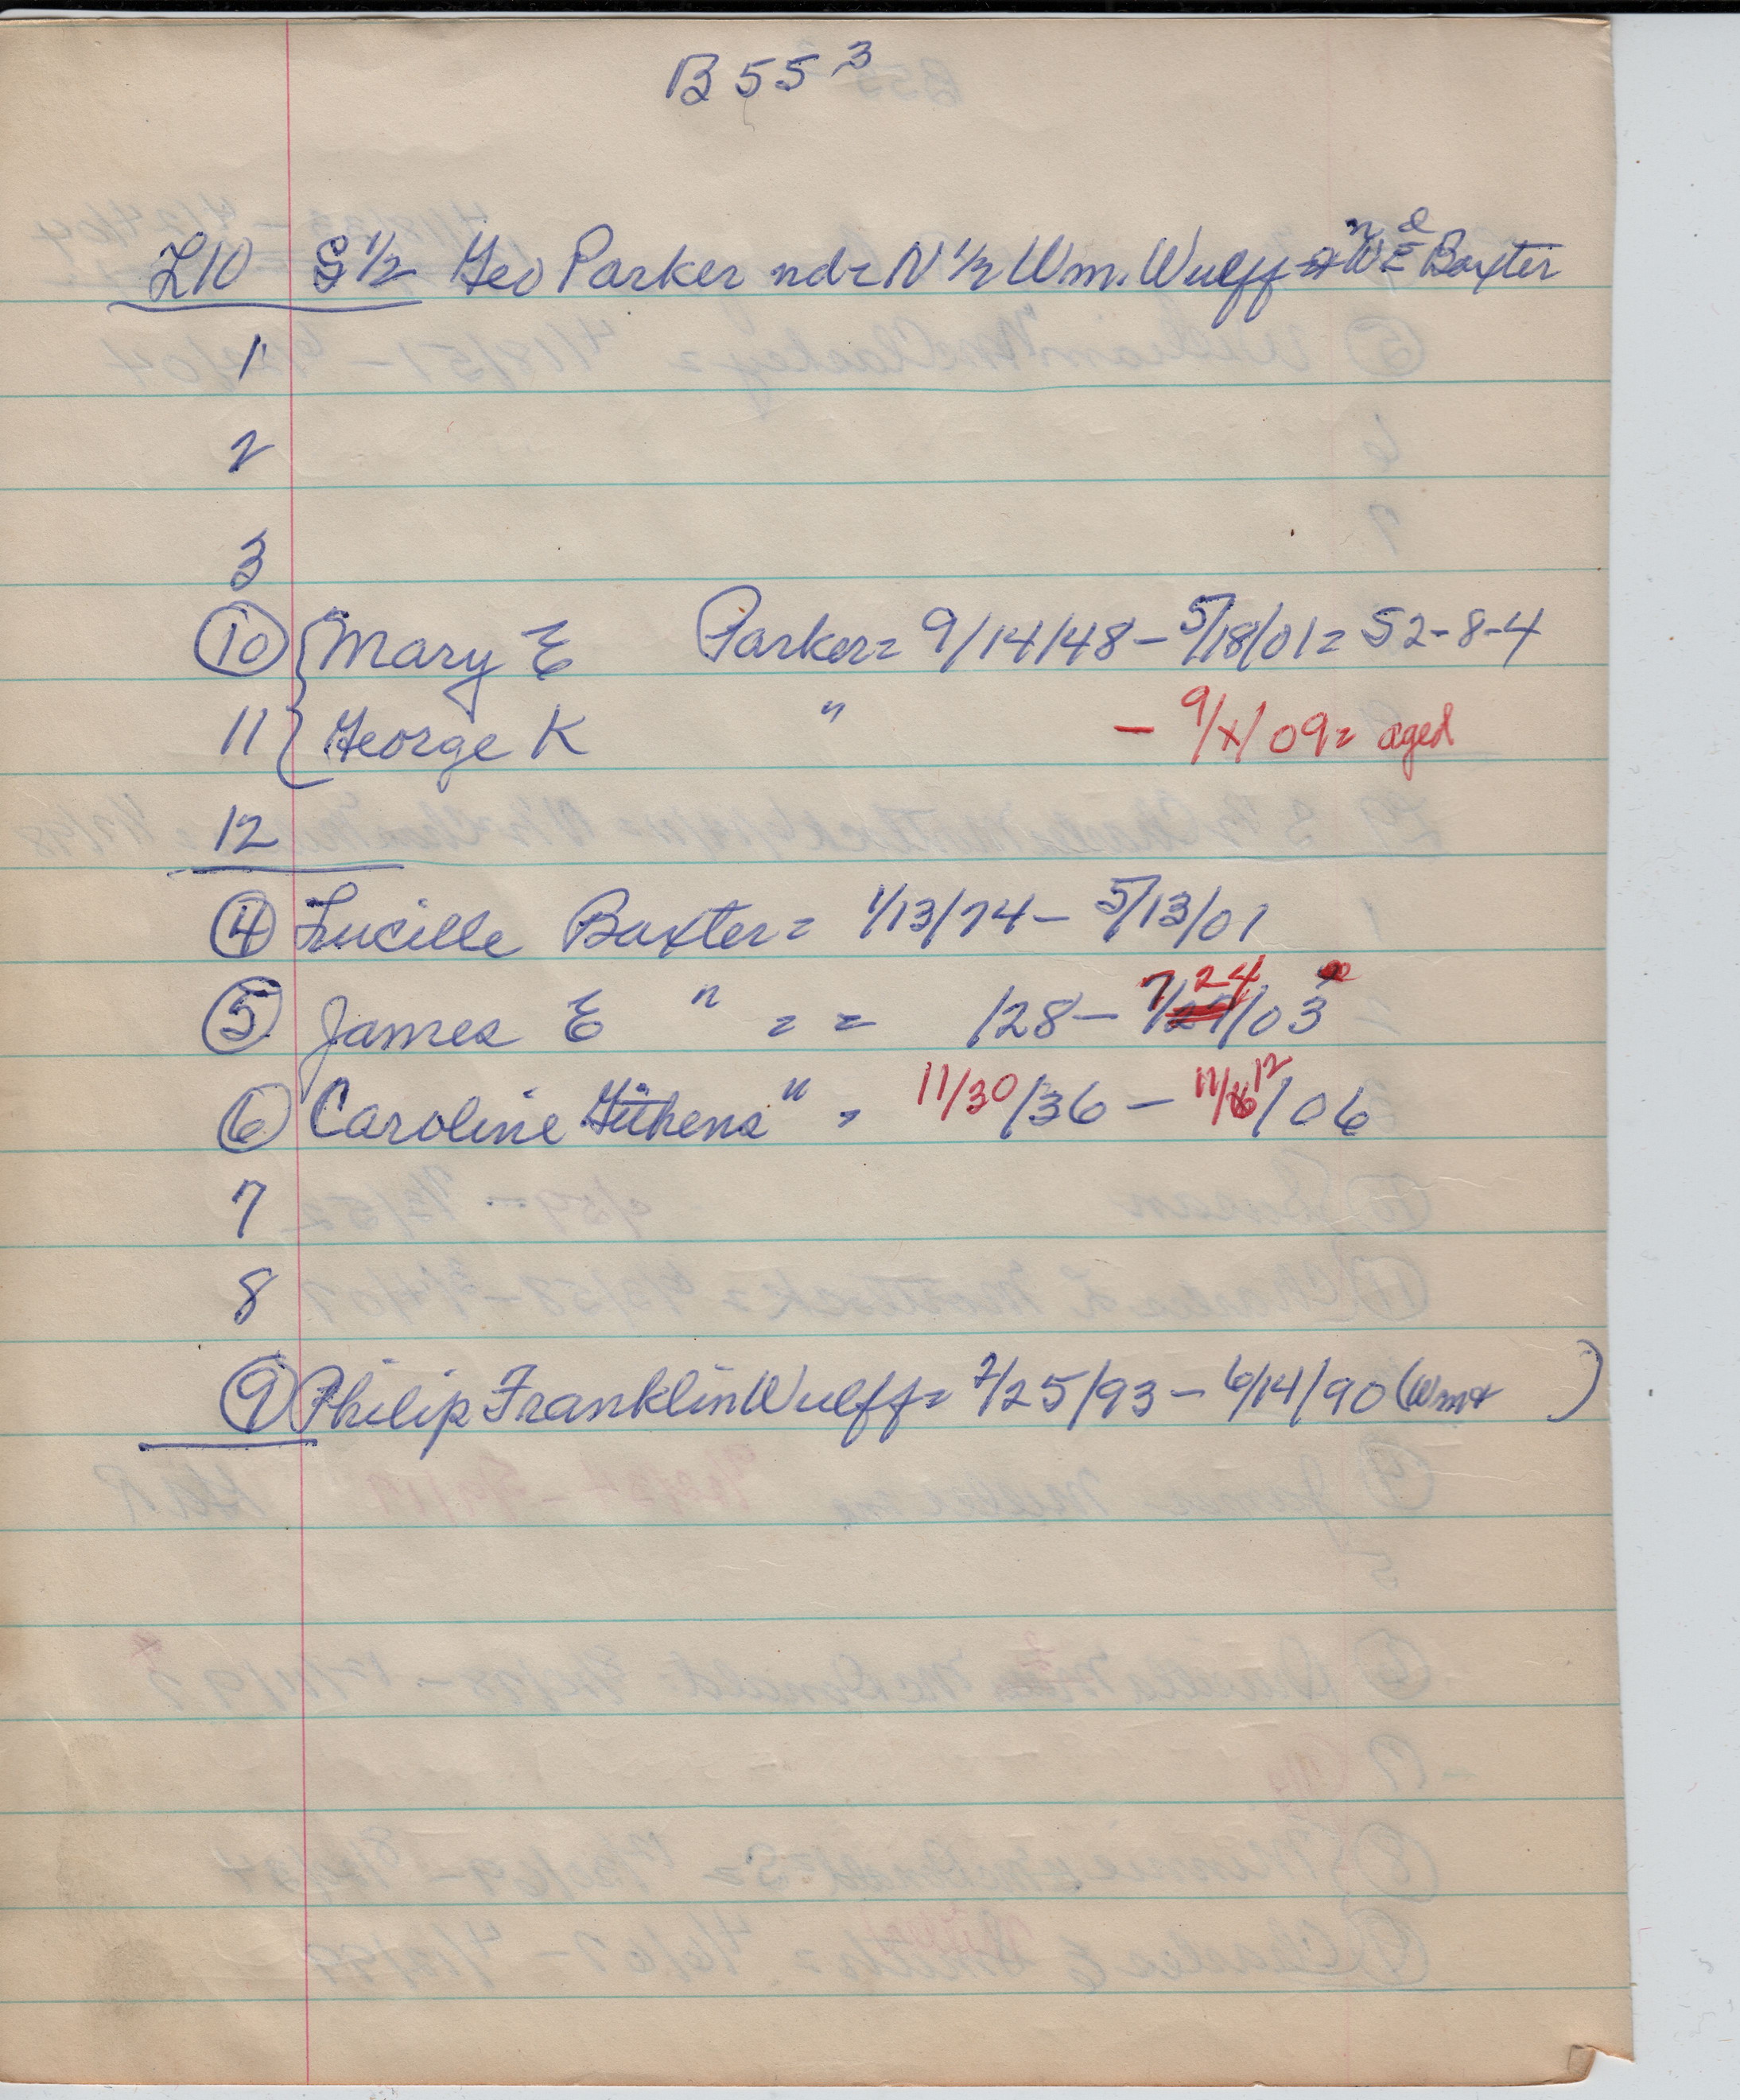 B 55 3
L10 S 1/2 Geo Parker nd = N 1/2 Wm. Wulff Baxter
1
2
3
10 Mary E Parker = 9/14/48 - 5/18/01 = 52-8-4
11 George K " - 9/x/09 = aged
12
4 Lucille Baxter = 1/13/74 - 5/13/01
5 James E " = = /28 - 7/24/03
6 Caroline Githens " = 11/30/36 - 11/12/06
7
8
9 Philip Franklin Wulff = 2/25/93 - 6/14/90 (Wm + )